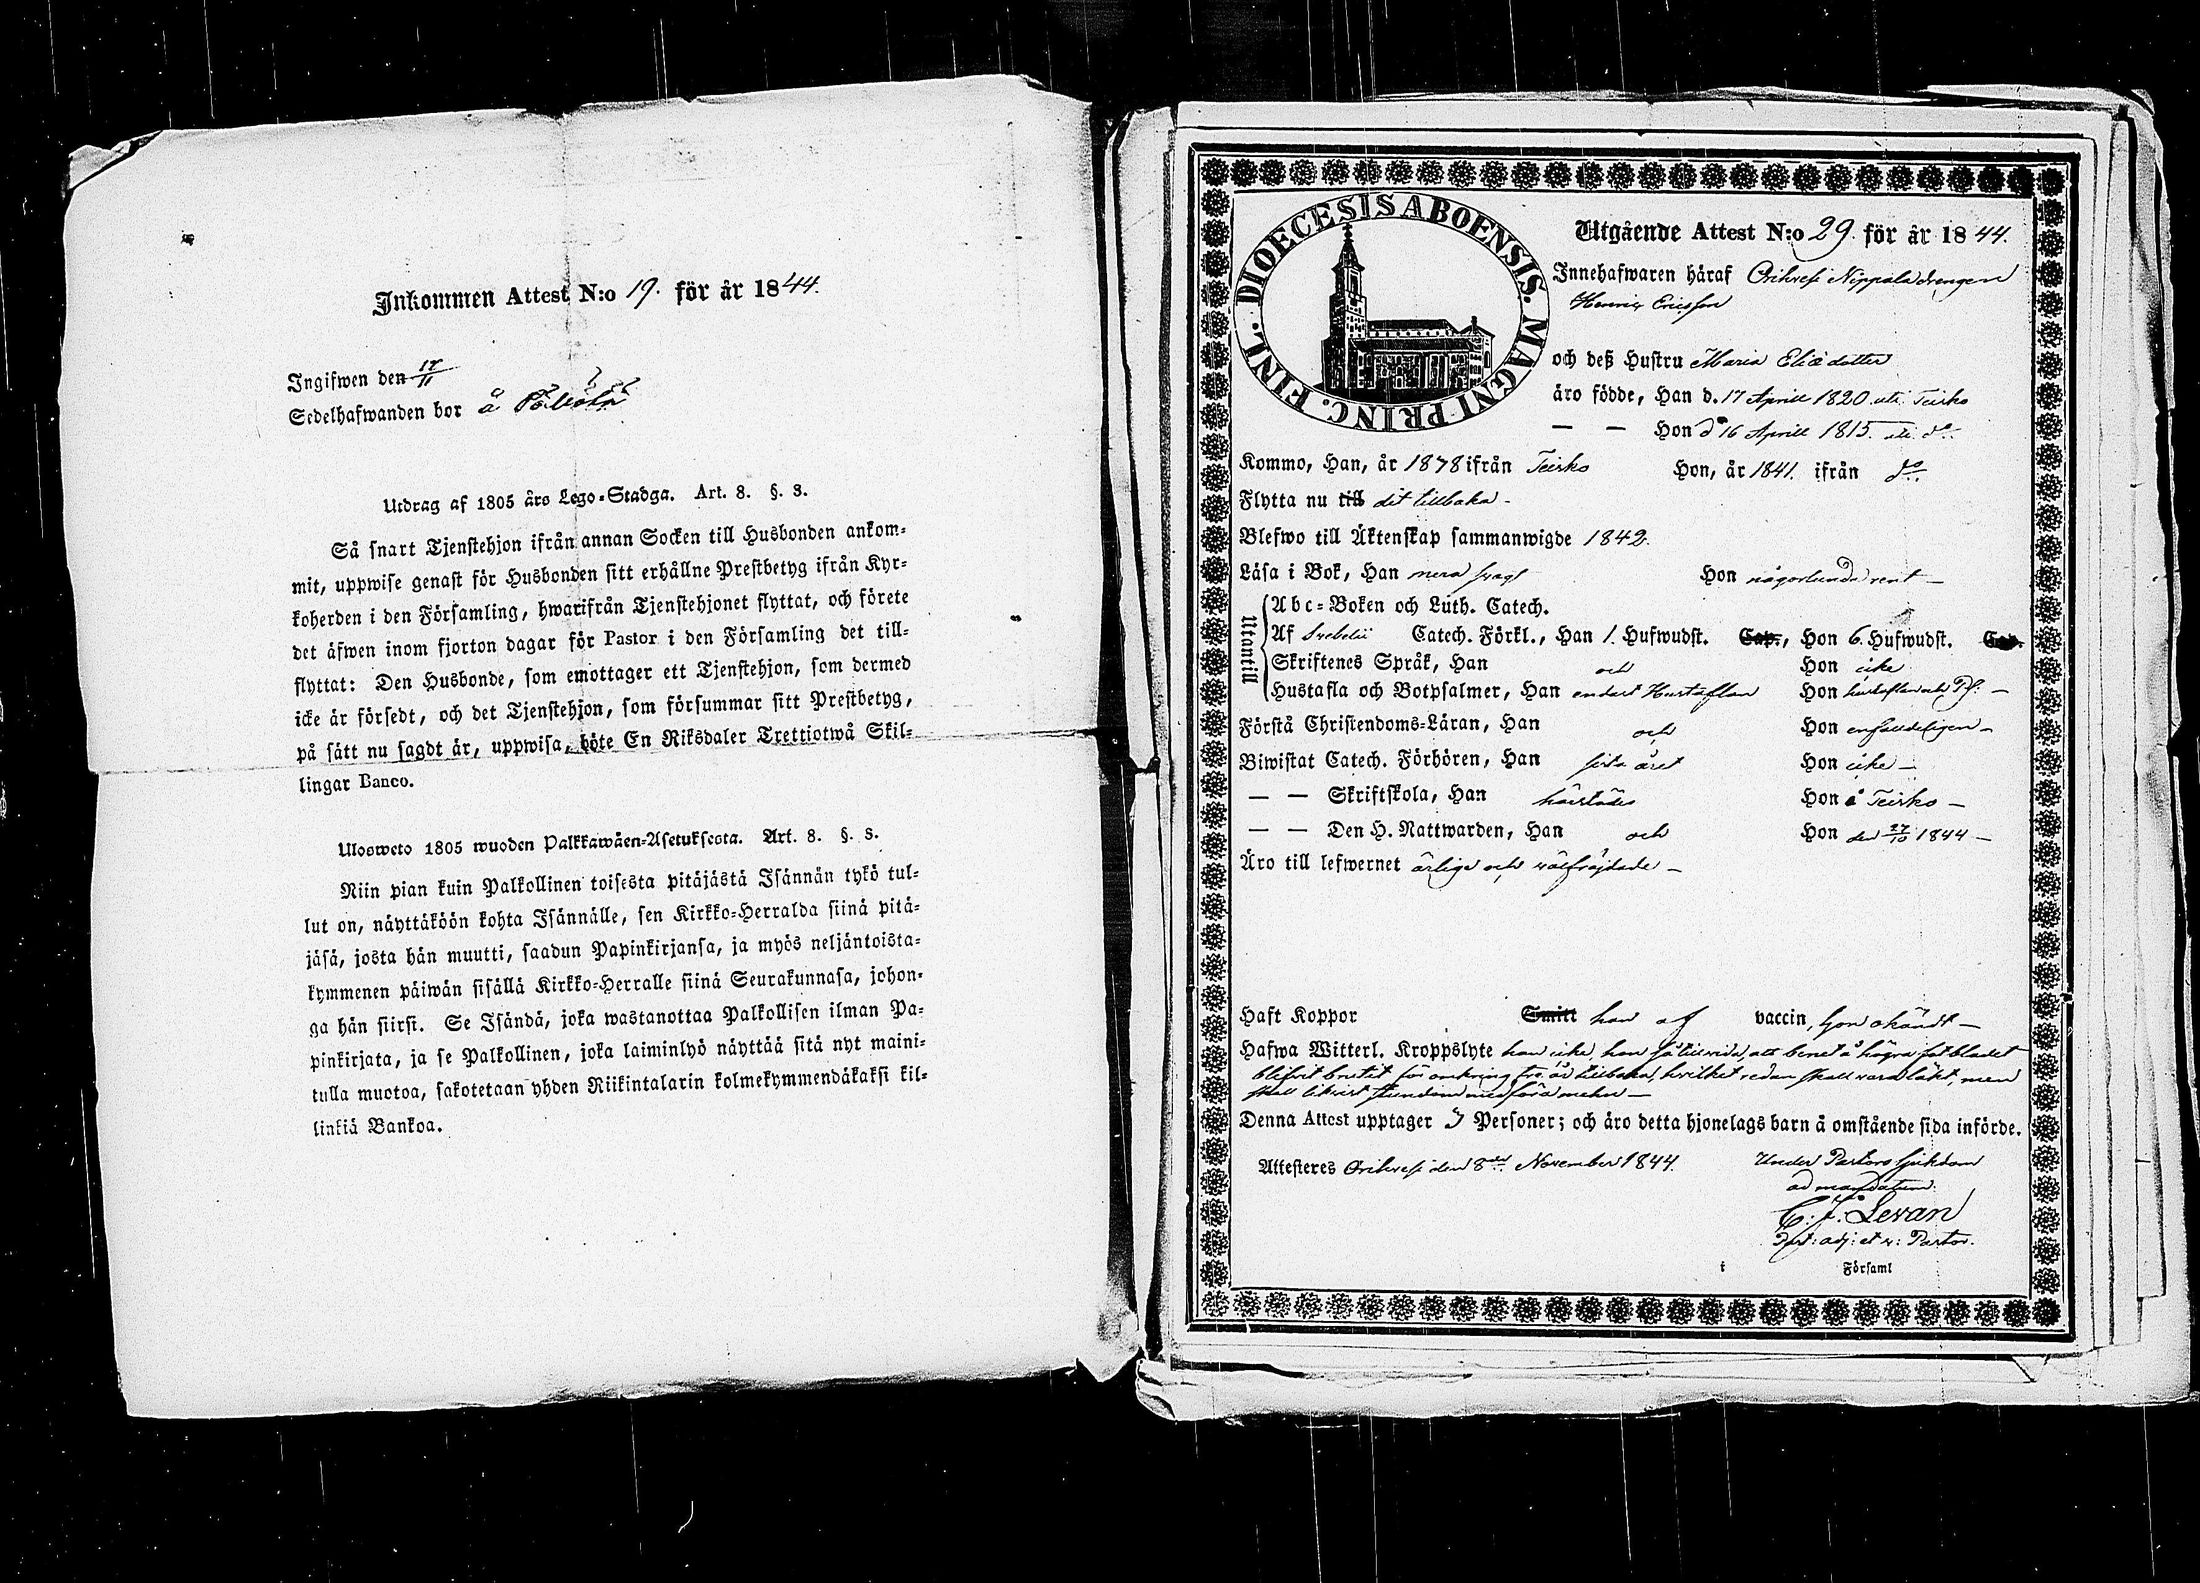 Inkommen Attest N:o 19. för år 1844.
Ingifwen den 17/11
Sedelhafwanden bor å
Utdrag af 1805 års Lego-Stadga. Art. 8. §. 3.
Så snart Tjenstehjon ifrån annan Socken till Husbonden ankom-
mit, uppwise genast för Husbonden sitt erhållne Prestbetyg ifrån Kyr-
koherden i den Församling, hwarifrån Tjenstehjonet flyttat, och förete
det äfwen inom fjorton dagar för Pastor i den Församling det till-
flyttat: Den Husbonde, som emottager ett Tjenstehjon, som dermed
icke är försedt, och det Tjenstehjon, som försummar sitt Prestbetyg,
på sätt nu sagdt är, uppwisa, böte En Riksdaler Trettiotwå Skil-
lingar Banco.
Ulosweto 1805 wuoden Palkkawäen-Asetuksesta. Art. 8. §. 3.
Niin pian kuin Palkollinen toisesta pitäjästä Isännän tykö tul-
lut on, näyttäköön kohta Isännälle, sen Kirkko-Herralda siinä pitä-
jäsä, josta hän muutti, saadun Papinkirjansa, ja myös neljäntoista-
kymmenen päiwän sisällä Kirkko-Herralle siinä Seurakunnasa, johon-
ga hän siirsi. Se Isändä, joka wastanottaa Palkollisen ilman Pa-
pinkirjata, ja se Palkollinen, joka laiminlyö näyttää sitä nyt maini-
tulla muotoa, sakotetaan yhden Riikintalarin kolmekymmendäkaksi kil-
linkiä Bankoa.
DIOECESIS ABOENSIS. MAGNI PRINC. FINL.
Utgående Attest N:o 29. för år 1844.
Innehafwaren häraf Orihvesi Nippala drengen
Henric Ericsson
och deß Hustru Maria Eliædotter
äro födde, Han d. 17 Aprill 1820 uti Teisko
— — Hon d 16 Aprill 1815. uti do.
Kommo, Han, år 1878 ifrån Teisko Hon, år 1841. ifrån do.
Flytta nu till dit tillbaka -
Blefwo till Äktenskap sammanwigde 1842.
Läsa i Bok, Han mera swagt Hon någorlunda rent —
Utantill
Abc-Boken och Luth. Catech.
Af Svebelii Catech. Förkl., Han 1. Hufwudst. Cap., Hon 6. Hufwudst. Cap.
Skriftenes Språk, Han och Hon icke
Hustafla och Botpsalmer, Han endast Hustaflan Hon hustaflan och Ps. —
Förstå Christendoms-Läran, Han och Hon enfaldeligen —
Biwistat Catech. Förhören, Han sista året Hon icke —
— — Skriftskola, Han härstädes Hon i Teisko —
— — Den H. Nattwarden, Han och Hon den 27/10 1844 —
Äro till lefwernet ärlige och wälfräjdade —
Haft Koppor Smitt han af vaccin, hon okändt —
Hafwa Witterl. Kroppslyte han icke, hon få tillvida, att benet å högra fotbladet
blifvit brutit för omkring tre år tillbaka, hvilket redan skall vara läkt, men
skall likvist stundom medföra mehn —
Denna Attest upptager 3 Personer; och äro detta hjonelags barn å omstående sida införde.
Attesteres Orihvesi den 8de November 1844. Under Pastors sjukdom
ad mandatum
C. J. Levan
Past: adj: et v: Pastor.
i Församl